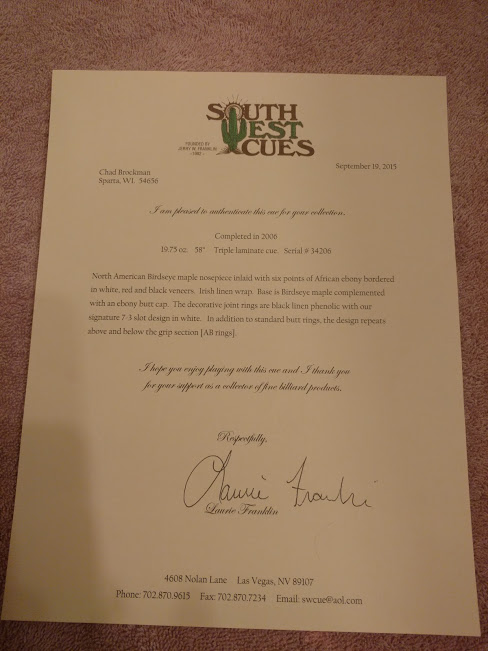 SOUTH
WEST
CUES
FOUNDED BY
JERRY W. FRANKLIN
- 1982 -
September 19, 2015
Chad Brockman
Sparta, WI. 54656
I am pleased to authenticate this cue for your collection.
Completed in 2006
19.75 oz. 58" Triple laminate cue. Serial # 34206
North American Birdseye maple nosepiece inlaid with six points of African ebony bordered
in white, red and black veneers. Irish linen wrap. Base is Birdseye maple complemented
with an ebony butt cap. The decorative joint rings are black linen phenolic with our
signature 7-3 slot design in white. In addition to standard butt rings, the design repeats
above and below the grip section [AB rings].
I hope you enjoy playing with this cue and I thank you
for your support as a collector of fine billiard products.
Respectfully,
Laurie Franklin
Laurie Franklin
4608 Nolan Lane Las Vegas, NV 89107
Phone: 702.870.9615 Fax: 702.870.7234 Email: swcue@aol.com